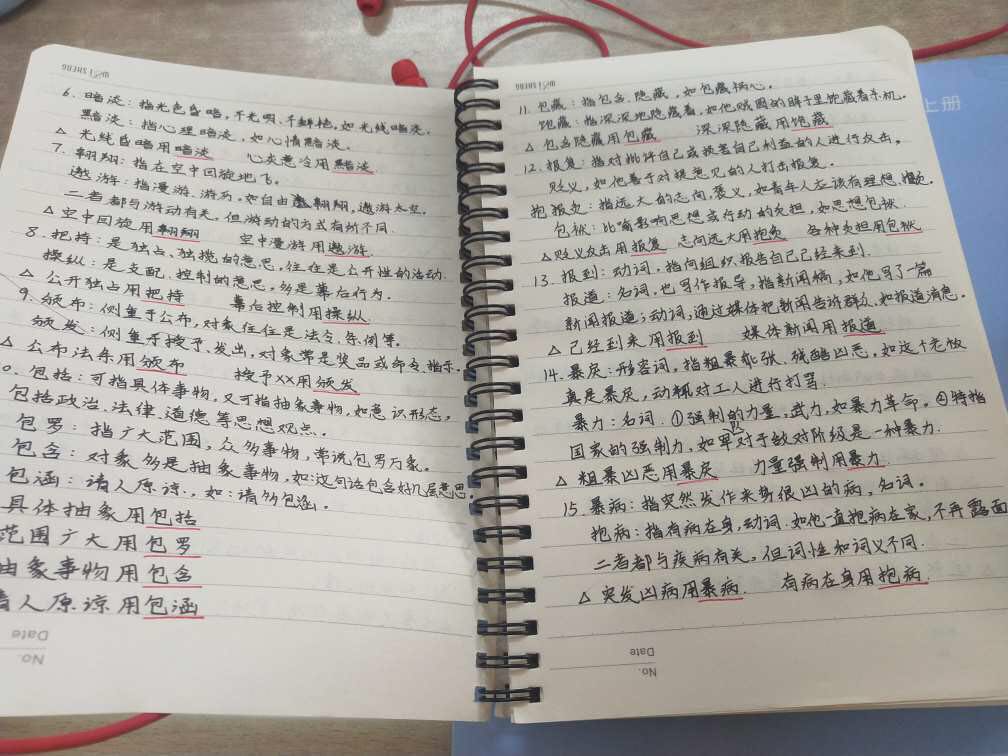 6. 暗淡：指光色昏暗，不光明、不鲜艳，如光线暗淡。
黯淡：指心理暗淡，如心情黯淡。
△ 光线昏暗用暗淡 心灰意冷用黯淡
7. 翱翔：指在空中回旋地飞。
遨游：指漫游、游历，如自由翱翔，遨游太空。
二者都与游动有关，但游动的方式有所不同.
△ 空中回旋用翱翔 空中漫游用遨游.
8. 把持：是独占、独揽的意思，往往是公开性的活动.
操纵：是支配、控制的意思，多是幕后行为.
△ 公开独占用把持 幕后控制用操纵.
9. 颁布：侧重于公布，对象往往是法令、条例等.
颁发：侧重于授予、发出，对象常是奖品或命令、指示.
△ 公布法条用颁布 授予xx用颁发
0. 包括：可指具体事物，又可指抽象事物，如意识形态，
包括政治、法律、道德等思想观点。
包罗：指广大范围，众多事物，常说包罗万象。
包含：对象多是抽象事物，如：这句话包含好几层意思.
包涵：请人原谅.，如：请多包涵。
具体抽象用包括
范围广大用包罗
抽象事物用包含
请人原谅用包涵
No.
Date
11. 包藏：指包含、隐藏，如包藏祸心。
饱藏：指深深地隐藏着，如他贼圆的眸子里饱藏着杀机。
△ 包含隐藏用包藏 深深隐藏用饱藏
12. 报复：指对批评自己或损害自己利益的人进行反击，
贬义，如他善于对提意见的人打击报复。
抱负：指远大的志向，褒义，如青年人应该有理想、抱负.
包袱：比喻影响思想或行动的负担，如思想包袱.
△ 贬义反击用报复 志向远大用抱负 各种负担用包袱
13. 报到：动词，指向组织报告自己已经来到.
报道：名词，也写作报导，指新闻稿，如他写了一篇
新闻报道；动词，通过媒体把新闻告诉群众，如报道消息.
△ 已经到来用报到 媒体新闻用报道
14. 暴戾：形容词，指粗暴乖张、残酷凶恶，如这个老板
真是暴戾，动辄对工人进行打骂.
暴力：名词. ①强制的力量，武力，如暴力革命。②特指
国家的强制力，如军队对于敌对阶级是一种暴力.
△ 粗暴凶恶用暴戾 力量强制用暴力
15. 暴病：指突然发作来势很凶的病，名词。
抱病：指有病在身，动词.如他一直抱病在家，不再露面
二者都与疾病有关，但词性和词义不同.
△ 突发凶病用暴病. 有病在身用抱病.
No.
Date
上册